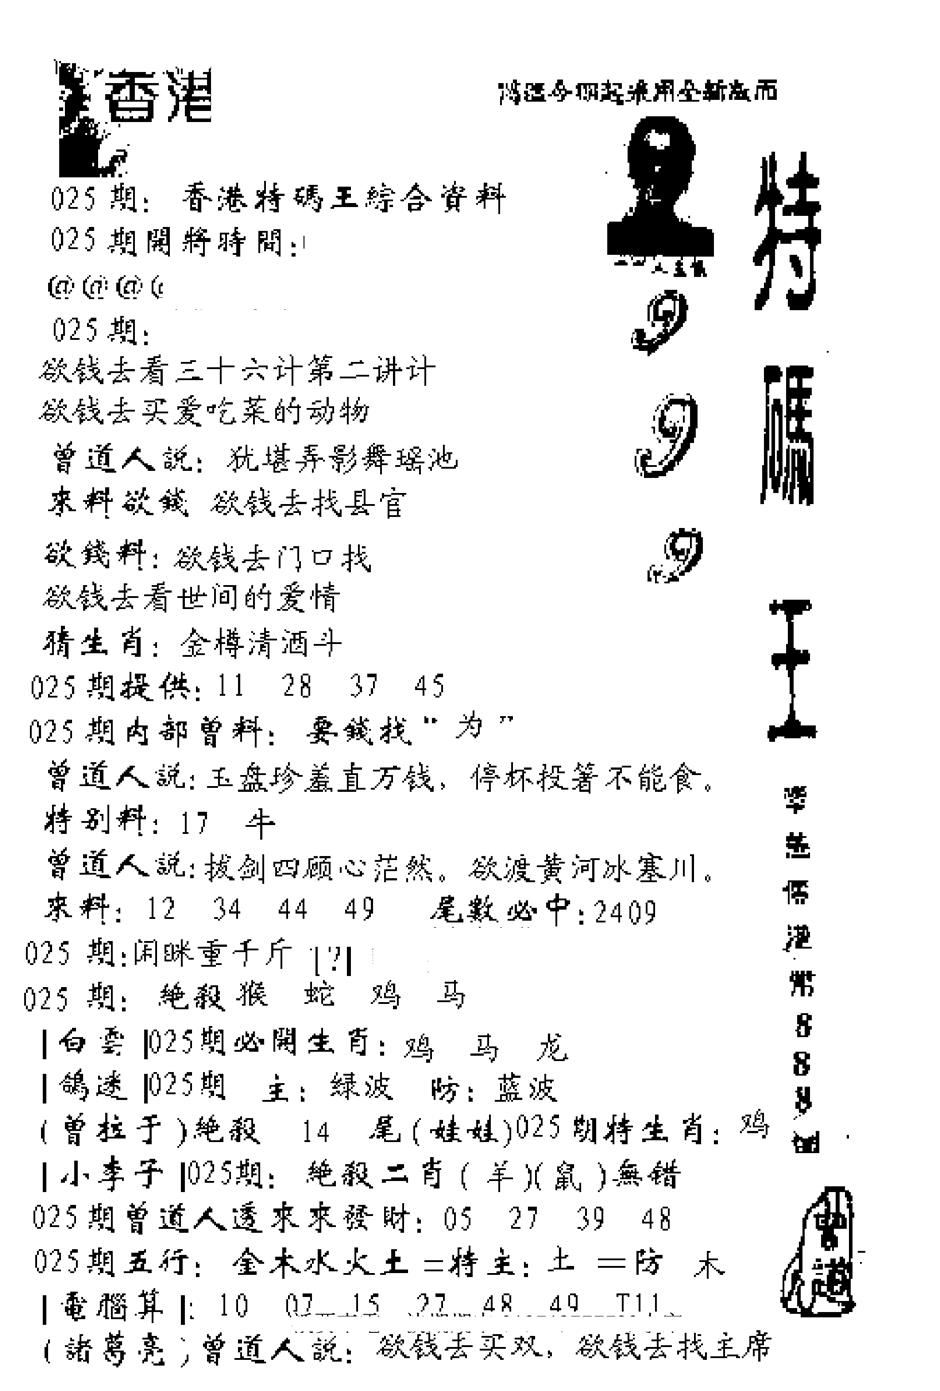 香港
025期：香港特碼王綜合資料
025期開將時間：
@@@
025期：
欲钱去看三十六计第二讲计
欲钱去买爱吃菜的动物
曾道人説：犹堪弄影舞瑶池
來料欲錢 欲钱去找县官
欲錢料：欲钱去门口找
欲钱去看世间的爱情
猜生肖：金樽清酒斗
025期提供：11 28 37 45
025期内部曾料：要錢找“为”
曾道人説：玉盘珍羞直万钱，停杯投箸不能食。
特别料：17 牛
曾道人説：拔剑四顾心茫然。欲渡黄河冰塞川。
來料：12 34 44 49 尾數必中：2409
025 期：闲眯重千斤 |?|
025 期：絶殺 猴 蛇 鸡 马
|白雲|025期必開生肖：鸡 马 龙
|鴿迷|025期 主：绿波 防：蓝波
(曾拉于)絶殺 14 尾(娃娃)025期特生肖：鸡
|小李子|025期：絶殺二肖(羊)(鼠)無错
025期曾道人透來來發財：05 27 39 48
025期五行：金木水火土=特主：土 =防 木
|電腦算|：10 07 15 27 48 49 T11
(諸葛亮)曾道人説：欲钱去买双，欲钱去找主席
特碼王
999
港幣888